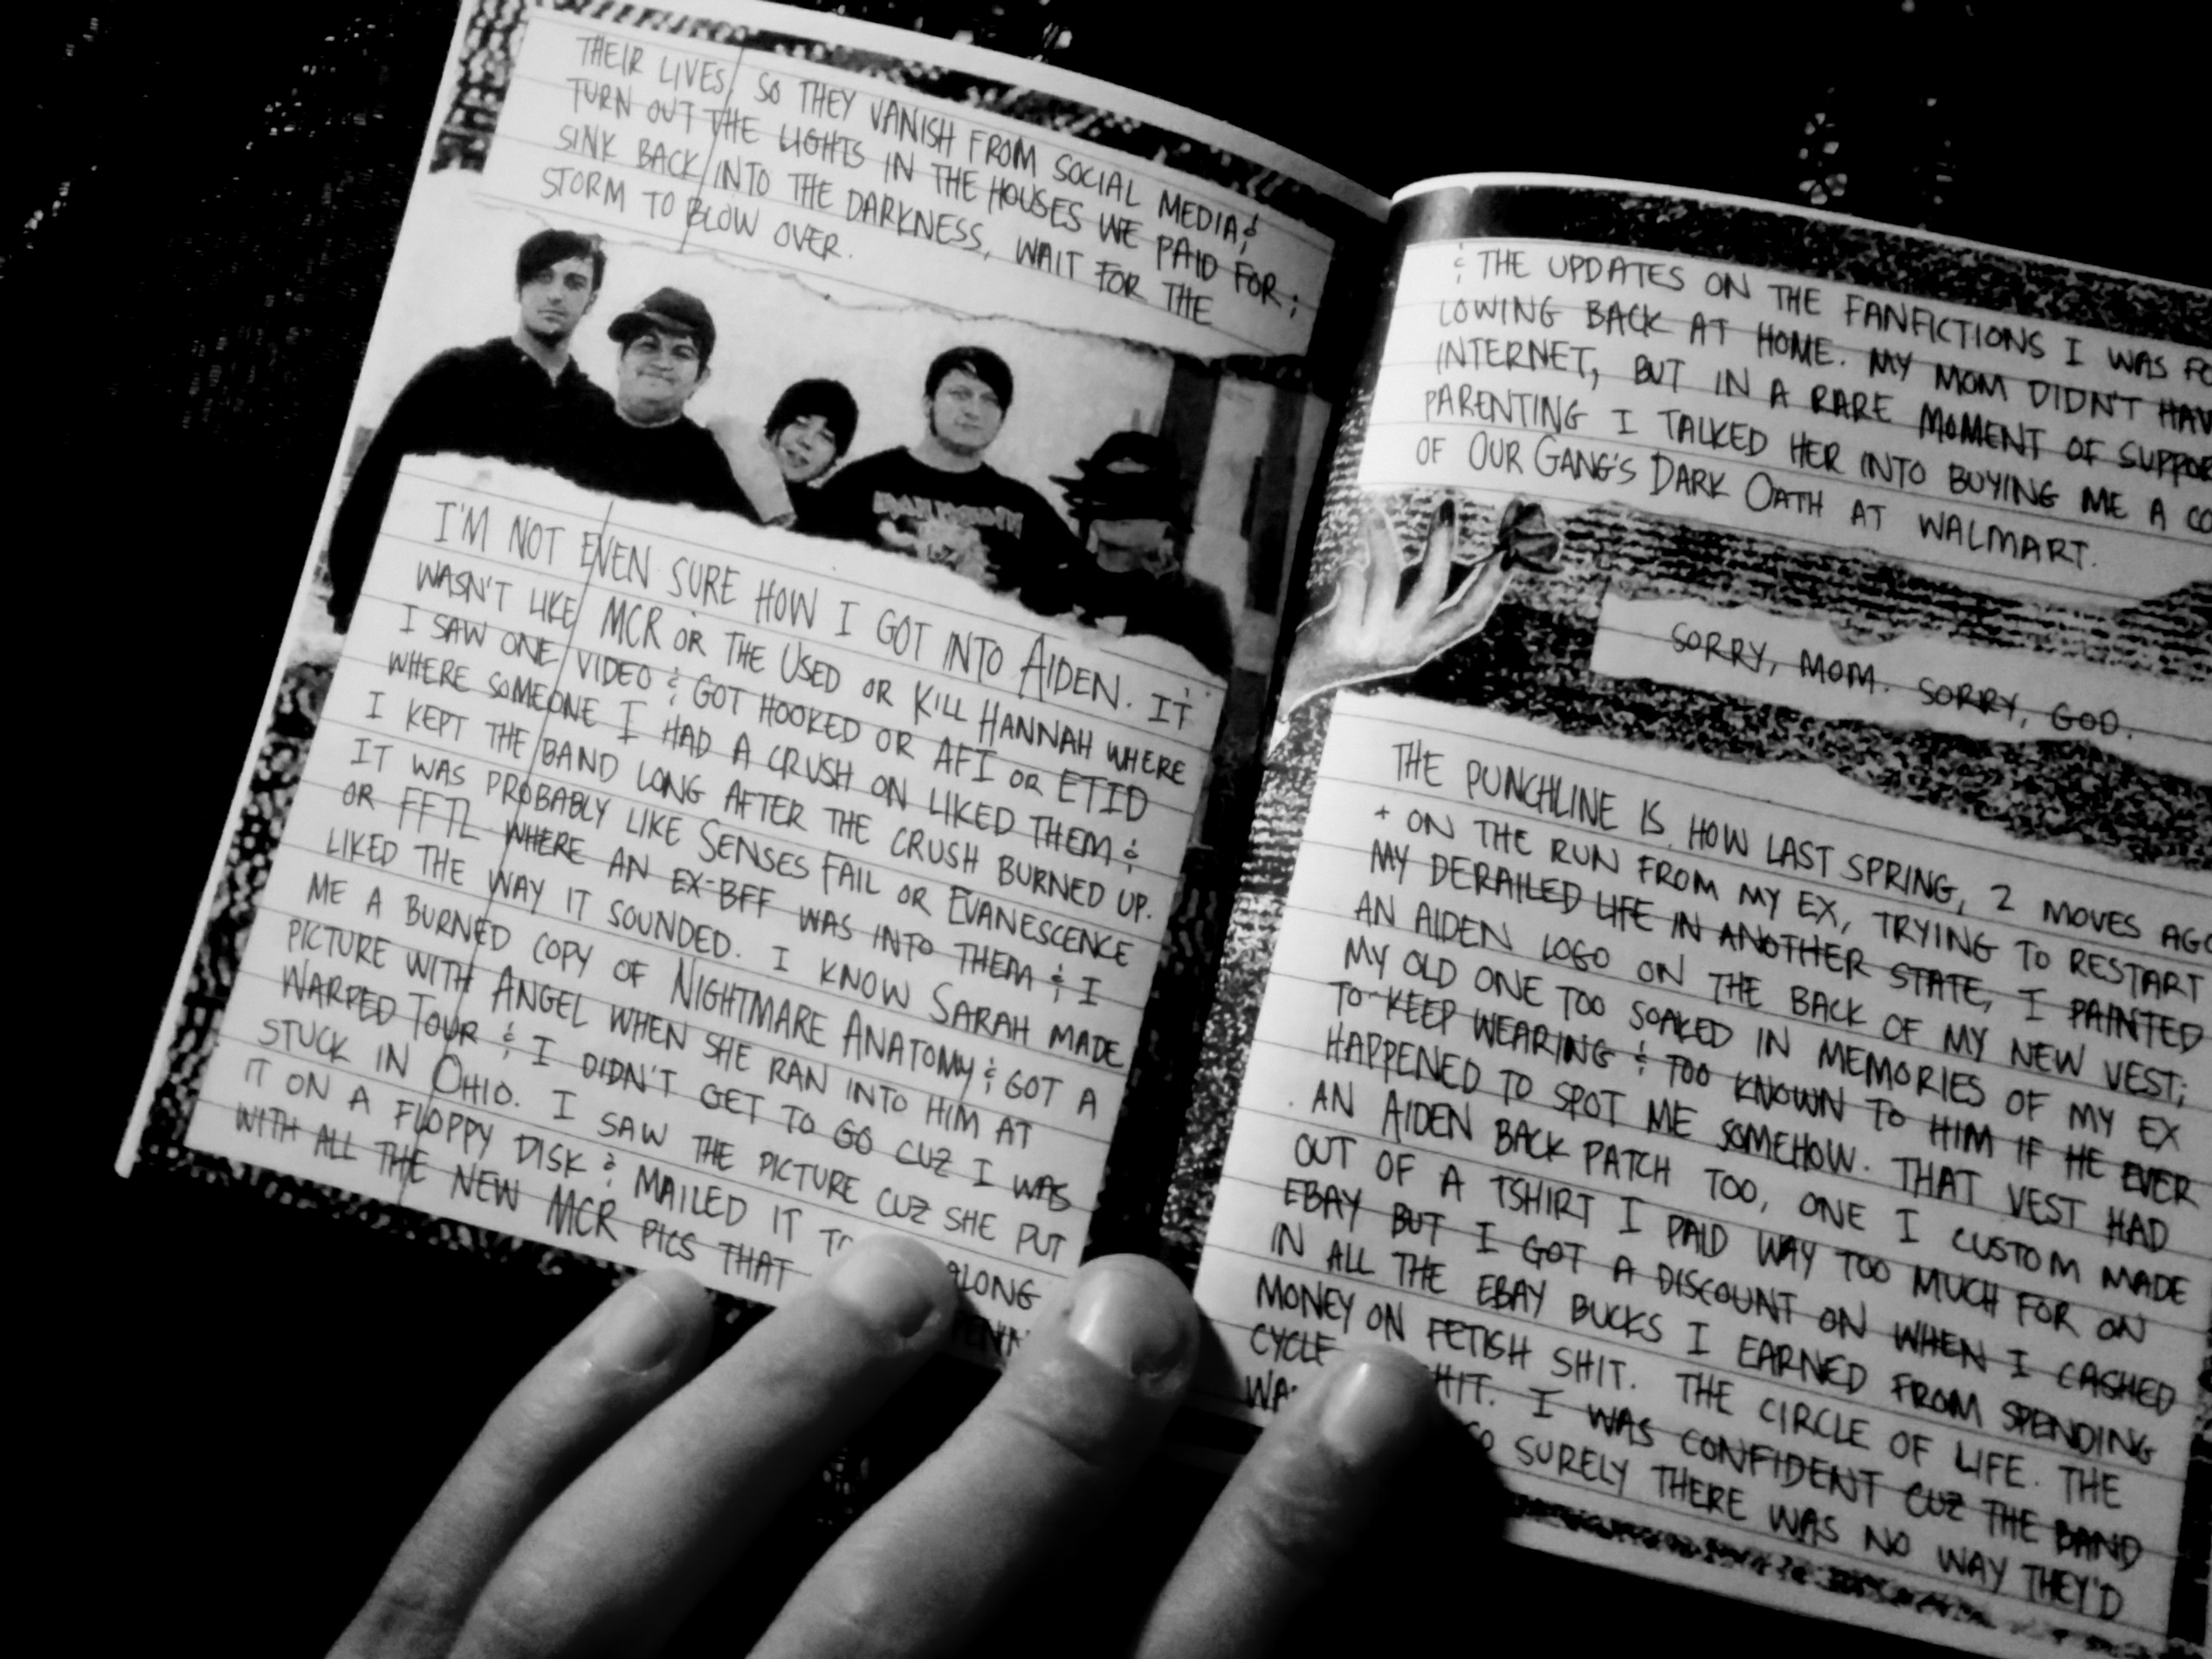 THEIR LIVES, SO THEY VANISH FROM SOCIAL MEDIA &
TURN OUT THE LIGHTS IN THE HOUSES WE PAID FOR;
SINK BACK INTO THE DARKNESS, WAIT FOR THE
STORM TO BLOW OVER.
I'M NOT EVEN SURE HOW I GOT INTO AIDEN. IT
WASN'T LIKE MCR OR THE USED OR KILL HANNAH WHERE
I SAW ONE VIDEO & GOT HOOKED OR AFI OR ETID
WHERE SOMEONE I HAD A CRUSH ON LIKED THEM &
I KEPT THE BAND LONG AFTER THE CRUSH BURNED UP.
IT WAS PROBABLY LIKE SENSES FAIL OR EVANESCENCE
OR FFTL WHERE AN EX-BFF WAS INTO THEM & I
LIKED THE WAY IT SOUNDED. I KNOW SARAH MADE
ME A BURNED COPY OF NIGHTMARE ANATOMY & GOT A
PICTURE WITH ANGEL WHEN SHE RAN INTO HIM AT
WARPED TOUR & I DIDN'T GET TO GO CUZ I WAS
STUCK IN OHIO. I SAW THE PICTURE CUZ SHE PUT
IT ON A FLOPPY DISK & MAILED IT ALONG
WITH ALL THE NEW MCR PICS THAT
& THE UPDATES ON THE FANFICTIONS I WAS FO
LOWING BACK AT HOME. MY MOM DIDN'T HAV
INTERNET, BUT IN A RARE MOMENT OF SUPPOR
PARENTING I TALKED HER INTO BUYING ME A CO
OF OUR GANG'S DARK OATH AT WALMART.
SORRY, MOM. SORRY, GOD.
THE PUNCHLINE IS HOW LAST SPRING, 2 MOVES AGO
+ ON THE RUN FROM MY EX, TRYING TO RESTART
MY DERAILED LIFE IN ANOTHER STATE, I PAINTED
AN AIDEN LOGO ON THE BACK OF MY NEW VEST;
MY OLD ONE TOO SOAKED IN MEMORIES OF MY EX
TO KEEP WEARING & TOO KNOWN TO HIM IF HE EVER
HAPPENED TO SPOT ME SOMEHOW. THAT VEST HAD
AN AIDEN BACK PATCH TOO, ONE I CUSTOM MADE
OUT OF A TSHIRT I PAID WAY TOO MUCH FOR ON
EBAY BUT I GOT A DISCOUNT ON WHEN I CASHED
IN ALL THE EBAY BUCKS I EARNED FROM SPENDING
MONEY ON FETISH SHIT. THE CIRCLE OF LIFE. THE
CYCLE HIT. I WAS CONFIDENT CUZ THE BAND
SO SURELY THERE WAS NO WAY THEY'D